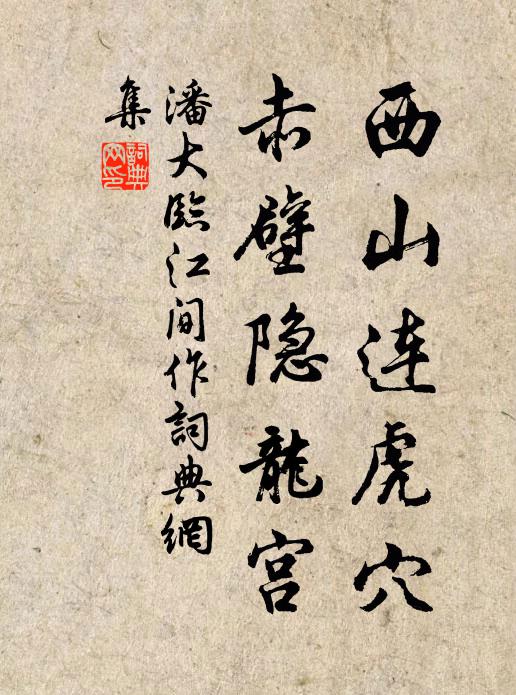 西山连虎穴
赤壁隐龙宫
潘大临江间作詞典網
集
詞典
网印